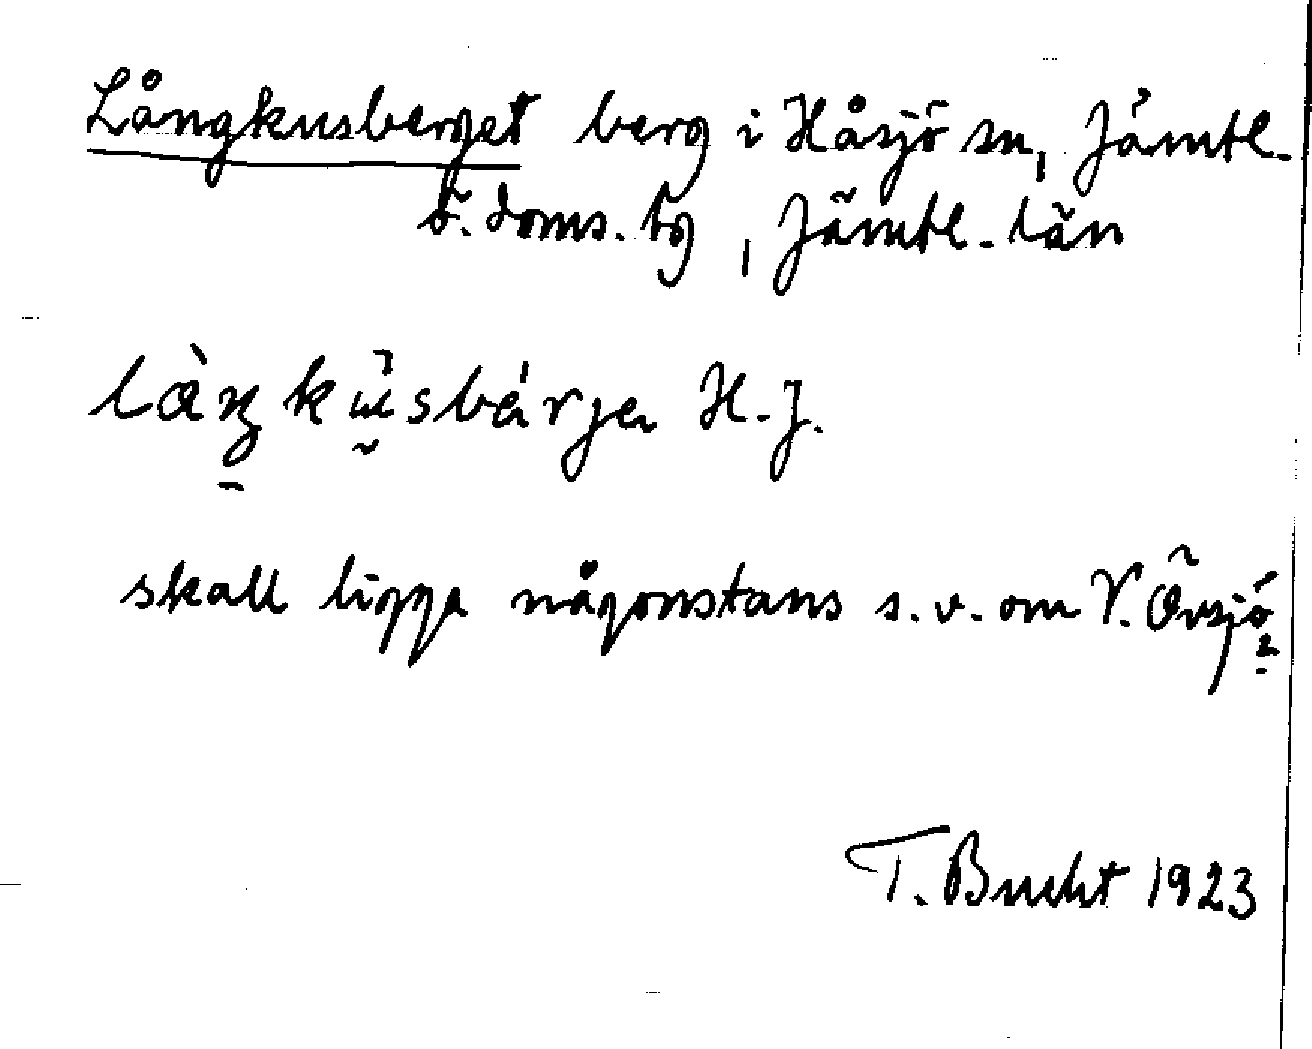 Långkusberget berg i Håsjö sn, Jämtl.
ö. doms. tg, Jämtl. län
H. J.
skall ligga någonstans s.v. om V. Övsjö
T. Bucht 1923